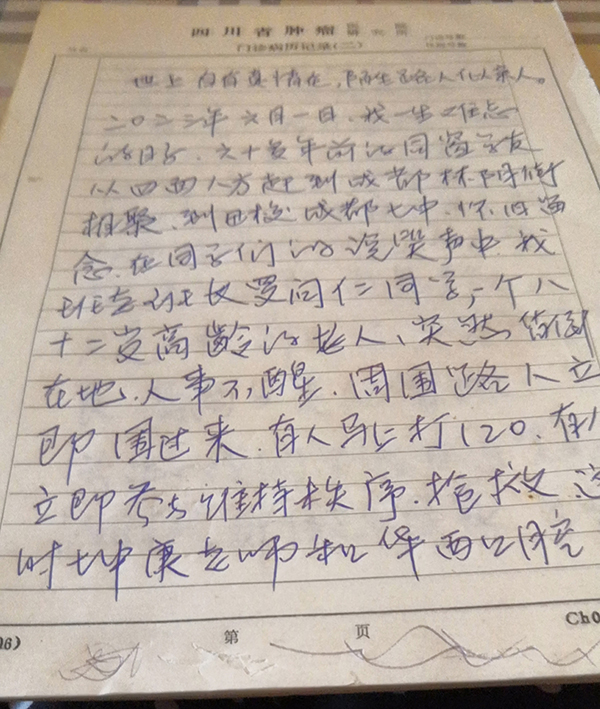 四川省肿瘤医院研究所
门诊病历记录(二)
世上自有真情在,陌生路人化亲人。
二〇二三年六月一日,我一生难忘
的日子,六十多年前的同窗学友
从四面八方赶到成都林荫街
相聚,到母校成都七中,怀旧留
念,在同学们的欢笑声中,我
班老班长罗问仁同学,一个八
十二岁高龄的老人,突然倒
在地,人事不醒,周围路人立
即围过来,有人马上打120,有人
立即参与维持秩序,抢救,这
时七中康老师和华西口腔
06)
第 页
Ch0